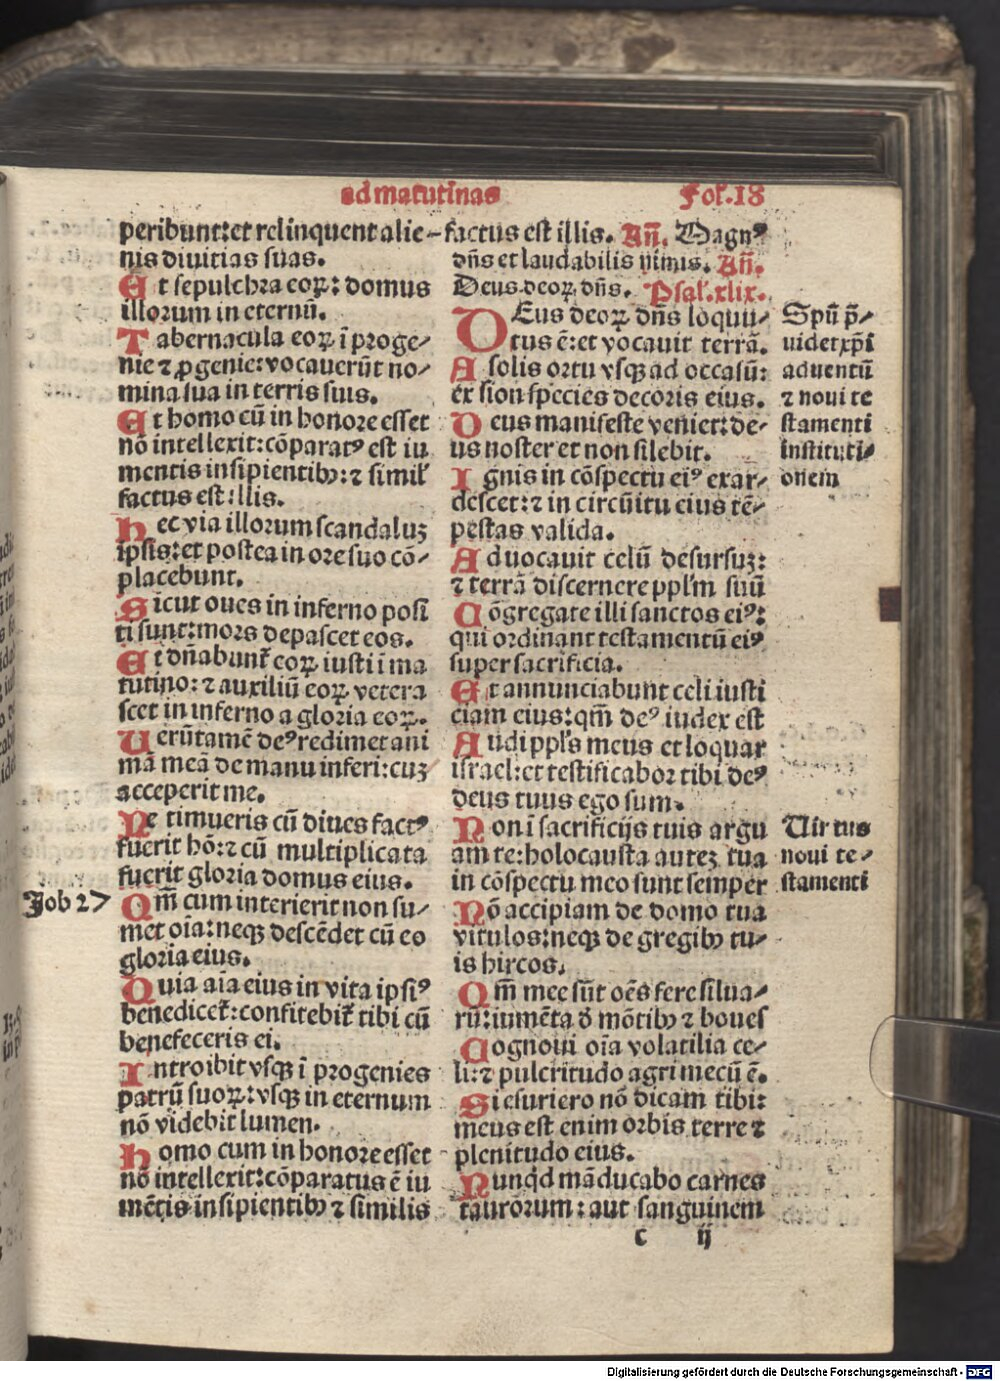 ad matutinas
Fol.18
peribunt:et relinquent alie-
nis diuitias suas.
Et sepulchra eoꝝ: domus
illorum in eternū.
Tabernacula eoꝝ ī proge-
nie ⁊ ꝓgenie:vocauerūt no-
mina sua in terris suis.
Et homo cū in honore esset
nō intellexit:cōparatꝰ est iu
mentis insipientibꝫ:⁊ simil'
factus est illis.
Hec via illorum scandaluꝫ
ipsis:et postea in ore suo cō-
placebunt.
Sicut oues in inferno posi
ti sunt:mors depascet eos.
Et dn̄abunt̄ eoꝝ iusti i ma
tutino:⁊ auxiliū eoꝝ vetera
scet in inferno a gloria eoꝝ.
Uerūtamē deꝰ redimet ani
mā meā de manu inferi:cuꝫ
acceperit me.
Ne timueris cū diues factꝰ
fuerit hō:⁊ cū multiplicata
fuerit gloria domus eius.
Job 27
Qm̄ cum interierit non su-
met oīa:neqꝫ descēdet cū eo
gloria eius.
Quia aīa eius in vita ipsiꝰ
benedicet̄:confitebit̄ tibi cū
benefeceris ei.
Introibit vsqꝫ ī progenies
patrū suoꝝ:vsqꝫ in eternum
nō videbit lumen.
Homo cum in honore esset
nō intellexit:cōparatus ē iu
mētis insipientibꝫ ⁊ similis
factus est illis. Añ. Magnꝰ
dn̄s et laudabilis nimis. Añ.
Deus deoꝝ dn̄s. Psal'.xlix.
DEus deoꝝ dn̄s loquu-
tus ē:et vocauit terrā.
A solis ortu vsqꝫ ad occasū:
ex sion species decoris eius.
Deus manifeste veniet:de-
us noster et non silebit.
Ignis in cōspectu eiꝰ exar-
descet:⁊ in circūitu eius tē-
pestas valida.
Aduocauit celū desursuꝫ:
⁊ terrā discernere ppl'm suū
Cōgregate illi sanctos eiꝰ:
qui ordinant testamentū eiꝰ
super sacrificia.
Et annunciabunt celi iusti
ciam eius:qm̄ deꝰ iudex est
Audi ppl's meus et loquar
israel:et testificabor tibi deꝰ
deus tuus ego sum.
Non ī sacrificijs tuis argu
am te:holocausta auteꝫ tua
in cōspectu meo sunt semper
Nō accipiam de domo tua
vitulos:neqꝫ de gregibꝫ tu-
is hircos.
Qm̄ mee sūt oēs fere silua-
rū:iumēta ī mōtibꝫ ⁊ boues
Cognoui oīa volatilia ce-
li:⁊ pulcritudo agri mecū ē.
Si esuriero nō dicam tibi:
meus est enim orbis terre ⁊
plenitudo eius.
Nunqd māducabo carnes
taurorum:aut sanguinem
c ij
Spū p̄-
uidet xp̄i
aduentū
⁊ noui te
stamenti
instituti-
onem
Uirtus
noui te-
stamenti
Digitalisierung gefördert durch die Deutsche Forschungsgemeinschaft - DFG